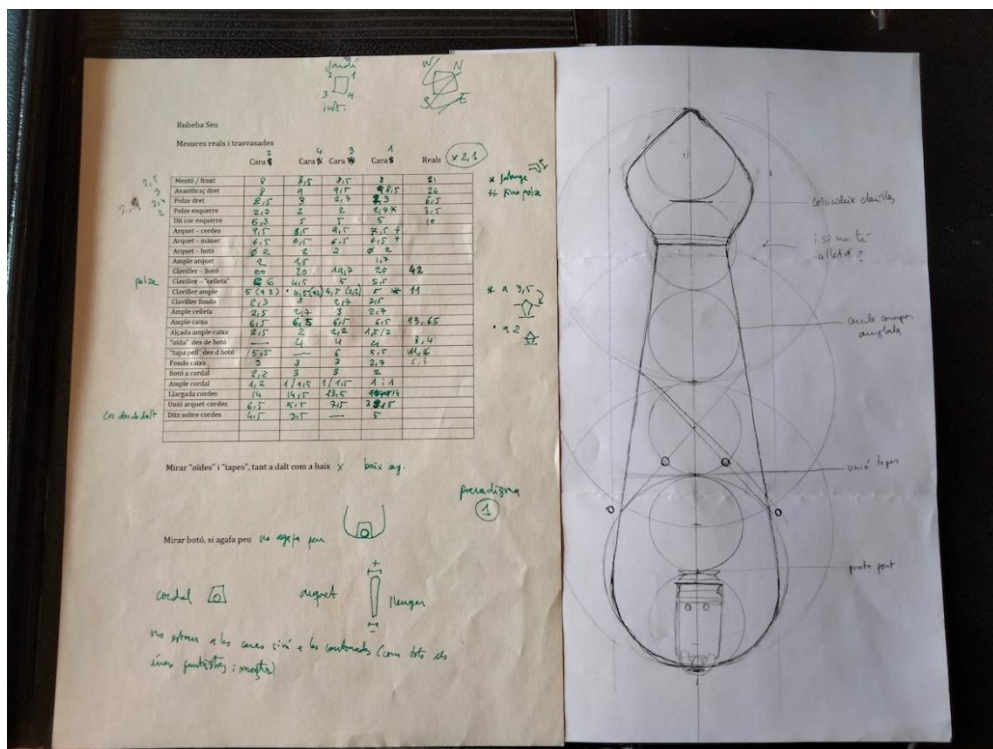 Jardí
2 1
3 4
int.
W N
S E
Rubeba Seu
Mesures reals i trasvasades
2 4 3 1
Cara Cara Cara Cara Reals x 2,1
Mentó / front 8 8,5 7,5 8 21
Avantbraç dret 8 9 9,5 26
Polze dret 2,5 3 2,7 2,3 6,5
Polze esquerre 2,7 2 2 2,7* 3,5
Dit cor esquerre 5,3 5 5 5 10
Arquet – cerdes 7,5 8,5 9,5 7,5 +
Arquet – mànec 6,5 6,5 6,5 6,5 +
Arquet – botó 2 2 2 2
Ample arquet 2 1,5 1,7
Claviller – Botó 20 20 19,7 20 42
polze Claviller – "celleta" 6 4,5 5 5,5
Claviller ample 5 5 * 11
Claviller fondo 2,3 3 2,7 2,5
Ample celleta 2,5 2,7 3 2,7
Ample caixa 6,5 6,5 6,5 6,5 13,65
Alçada ample caixa 2,5 2 2,2 1,5/2
"oïda" des de botó — 4 4 4 8,4
"tapa pell" des d botó 5,5 — 6 5,5 11,6
Fondo caixa 3 3 3 2,7
Botó a cordal 2,2 3 3 2
Ample cordal 1,2 1/1,5 1/1,5 1
Llargada cordes 14 14,5 13,5 14
Unió arquet-cordes 6,5 5,5 7,5
Cor des de dalt Ditz sobre cordes 4,5 3,5 — 5
* falange
** fins polze
* a 3,5
* a 2
Mirar "oïdes" i "tapes", tant a dalt com a baix x baix
paradigma
1
Mirar botó, si agafa peu no agafa peu
cordal arquet
+
-
no estan a les cares sinó a les cantonades (com tots els
coincideix claviller
i si no té
celleta?
unió tapes
punta pont